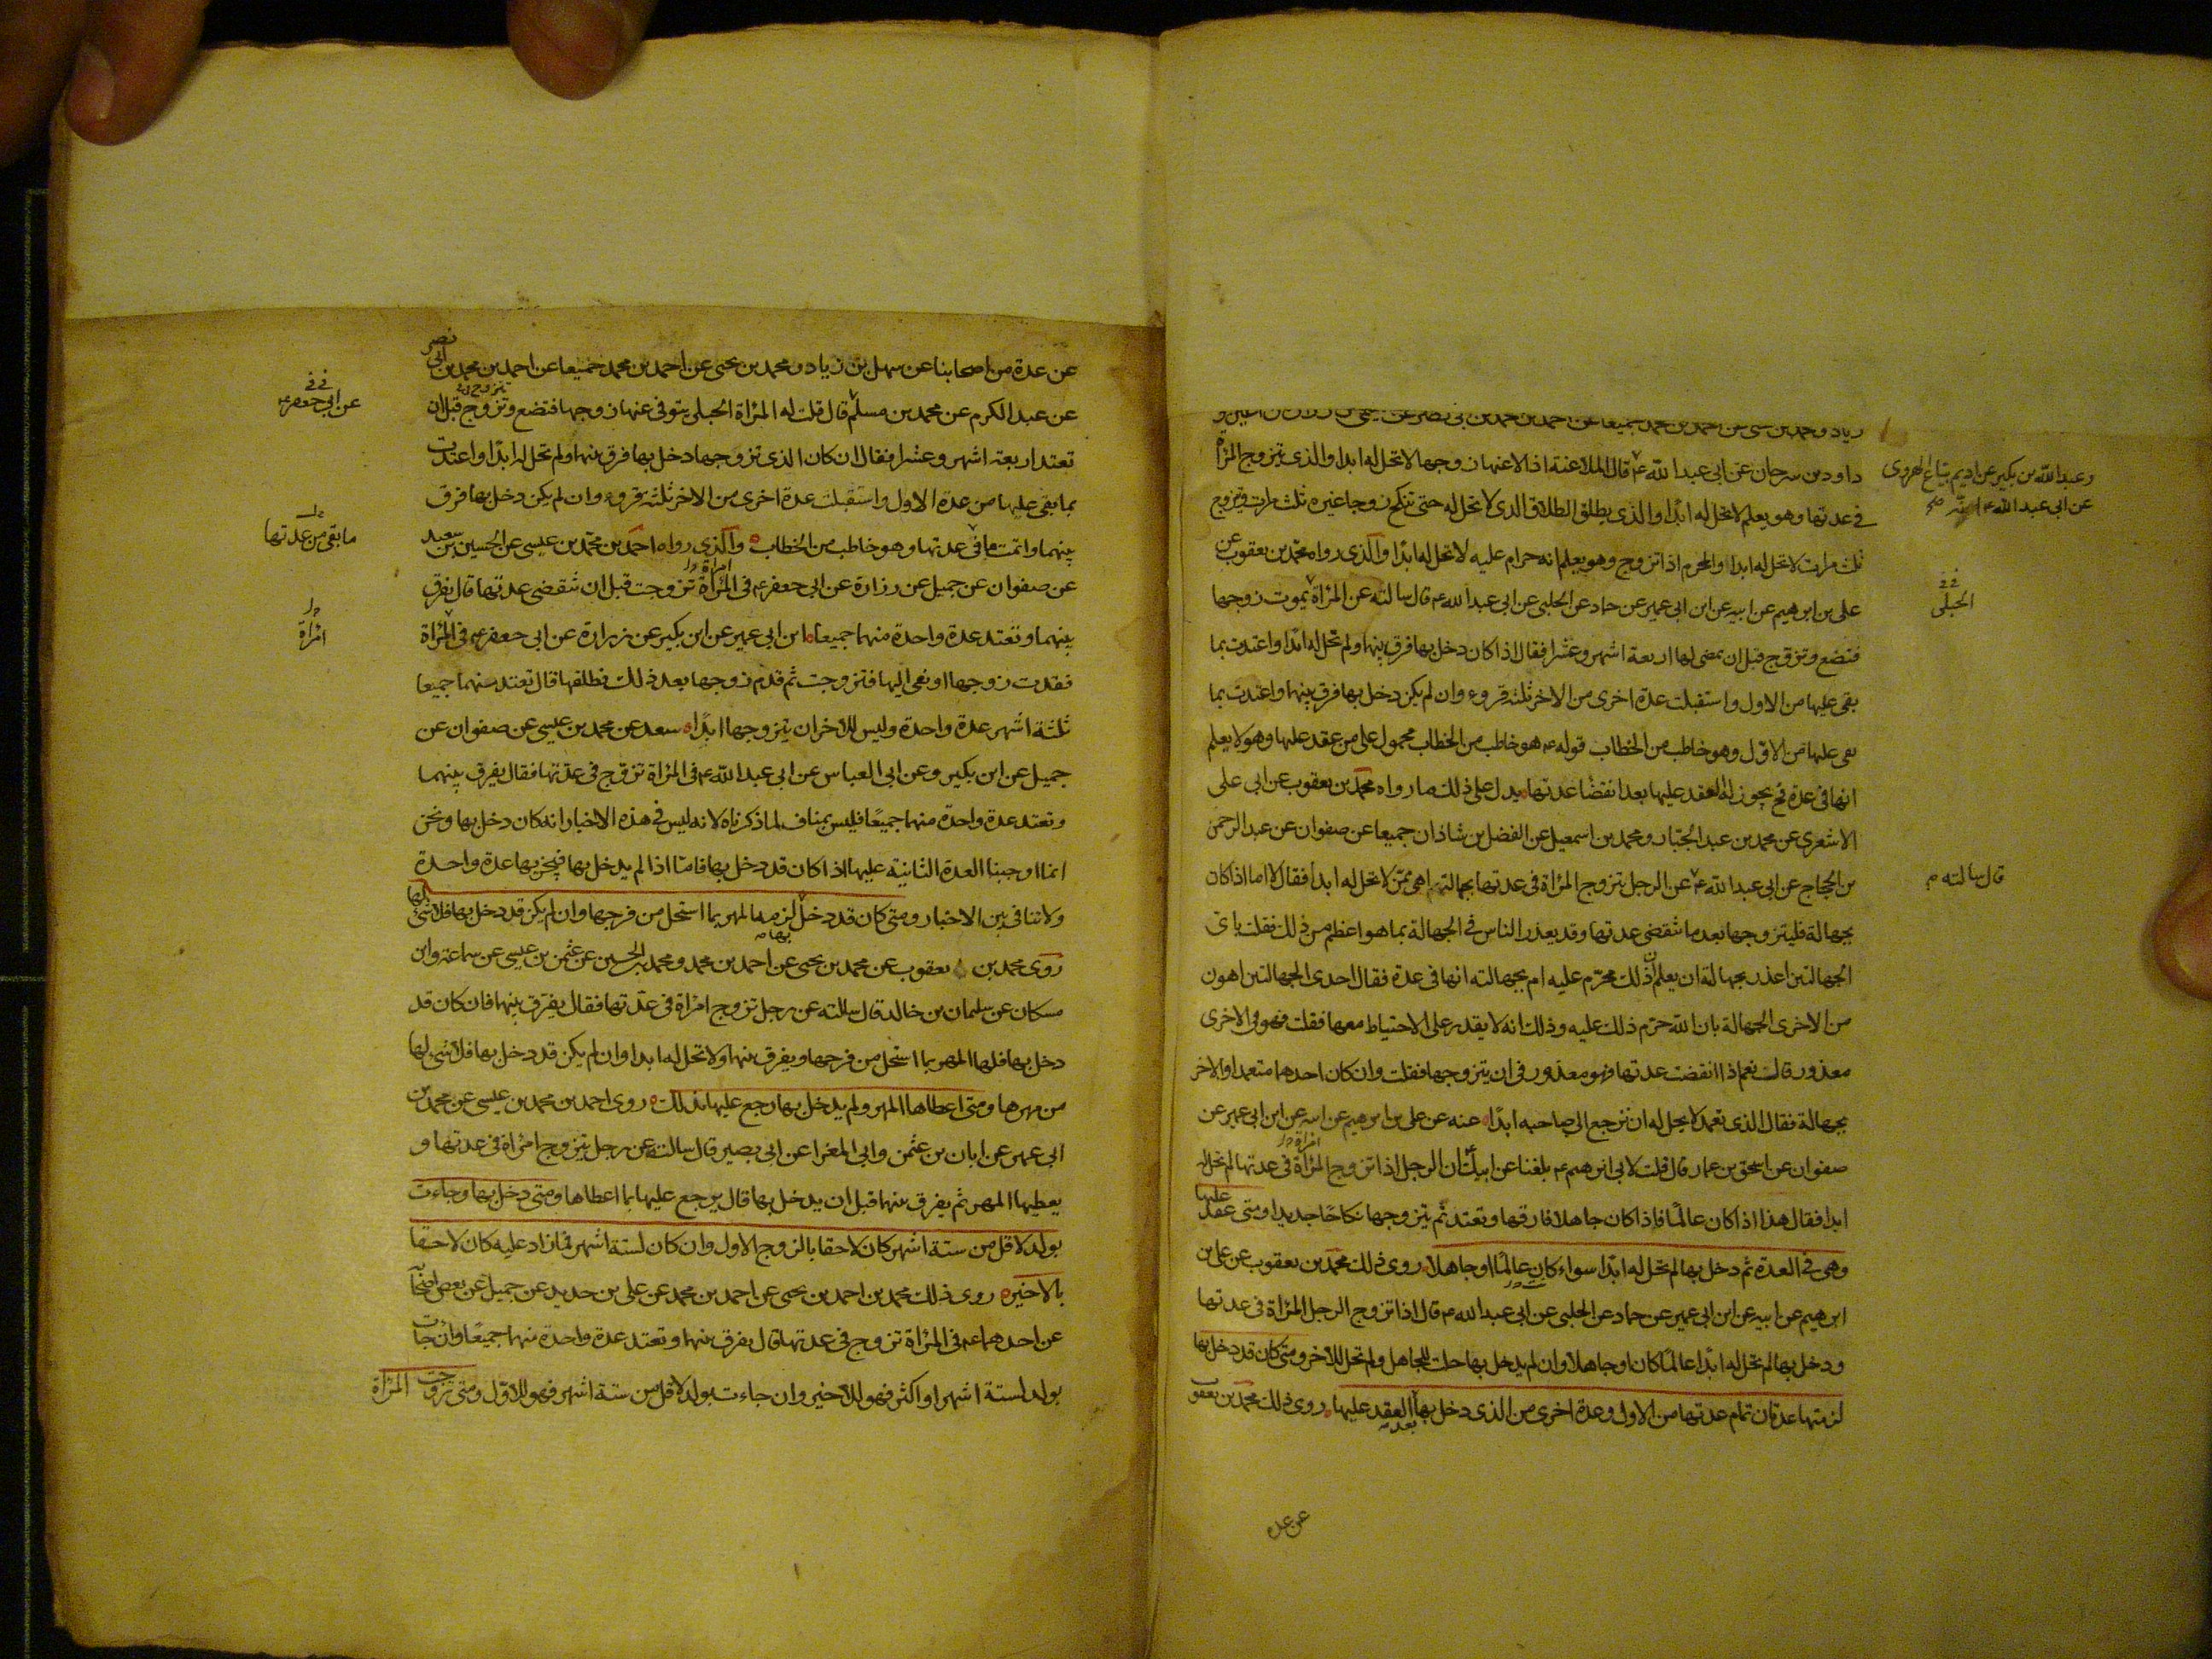 داود بن سرحان عن ابى عبد الله ع قال الملاعنة اذا لاعنها زوجها لا تحل له ابدا والذى يتزوج المراة
فى عدتها وهو يعلم لا تحل له ابدا والذى يطلق الطلاق الذى لا تحل له حتى تنكح زوجا غيره ثلث مرات وتزوج
ثلث مرات لا تحل له ابدا والمحرم اذا تزوج وهو يعلم انه حرام عليه لا تحل له ابدا والذى رواه محمد بن يعقوب عن
على بن ابرهيم عن ابيه عن ابن ابى عمير عن حماد عن الحلبى عن ابى عبد الله ع قال سالته عن المراة يموت زوجها
فتضع وتزوج قبل ان يمضى لها اربعة اشهر وعشرا فقال اذا كان دخل بها فرق بينهما ولم تحل له ابدا واعتدت بما
بقى عليها من الاول واستقبلت عدة اخرى من الاخر ثلثة قروء وان لم يكن دخل بها فرق بينهما واعتدت بما
بقى عليها من الاول وهو خاطب من الخطاب قوله ع هو خاطب من الخطاب محمول على من عقد عليها وهو لا يعلم
انها فى عدة فح يجوز له العقد عليها بعد انقضا عدتها يدل على ذلك ما رواه محمد بن يعقوب عن ابى على
الاشعرى عن محمد بن عبد الجبار ومحمد بن اسمعيل عن الفضل بن شاذان جميعا عن صفوان عن عبد الرحمن
بن الحجاج عن ابى عبد الله ع عن الرجل يتزوج المراة فى عدتها بجهالة اهى ممن لا تحل له ابدا فقال لا اما اذا كان
بجهالة فليتزوجها بعد ما تنقضى عدتها وقد يعذر الناس فى الجهالة بما هو اعظم من ذلك فقلت باى
الجهالتين اعذر بجهالته ان يعلم ان ذلك محرم عليه ام بجهالته انها فى عدة فقال احدى الجهالتين اهون
من الاخرى الجهالة بان الله حرم ذلك عليه وذلك انه لا يقدر على الاحتياط معها فقلت فهو فى الاخرى
معذور قال نعم اذا انقضت عدتها فهو معذور فى ان يتزوجها فقلت وان كان احدهما متعمدا والاخر
بجهالة فقال الذى تعمد لا يحل له ان يرجع الى صاحبه ابدا عنه عن على بن ابرهيم عن ابيه عن ابن ابى عمير عن
صفوان عن اسحق بن عمار قال قلت لابى ابرهيم ع بلغنا عن ابيك ان الرجل اذا تزوج المراة فى عدتها لم تحل له
ابدا فقال هذا اذا كان عالما فاذا كان جاهلا فارقها وتعتد ثم يتزوجها نكاحا جديدا ومتى عقد عليها
وهى فى العدة ثم دخل بها لم تحل له ابدا سواء كان عالما او جاهلا روى ذلك محمد بن يعقوب عن على بن
ابرهيم عن ابيه عن ابن ابى عمير عن حماد عن الحلبى عن ابى عبد الله ع قال اذا تزوج الرجل المراة فى عدتها
ودخل بها لم تحل له ابدا عالما كان او جاهلا وان لم يدخل بها حلت للجاهل ولم تحل للاخر ومتى كان قد دخل بها
لزمتها عدتان تمام عدتها من الاول وعدة اخرى من الذى دخل بها بعد العقد عليها روى ذلك محمد بن يعقوب
عن عدة
وعبد الله بن بكير عن اديم بياع الهروى
عن ابى عبد الله ع انه
الحبلى
قال سالته
عن عدة من اصحابنا عن سهل بن زياد ومحمد بن يحيى عن احمد بن محمد جميعا عن احمد بن محمد بن ابى نصر
عن عبد الكريم عن محمد بن مسلم قال قلت له المراة الحبلى يتوفى عنها زوجها فتضع وتزوج قبل ان
تعتد اربعة اشهر وعشرا فقال ان كان الذى تزوجها دخل بها فرق بينهما ولم تحل له ابدا واعتدت
بما بقى عليها من عدة الاول واستقبلت عدة اخرى من الاخر ثلثة قروء وان لم يكن دخل بها فرق
بينهما واتمت ما فى عدتها وهو خاطب من الخطاب والذى رواه احمد بن محمد بن عيسى عن الحسين بن سعيد
عن صفوان عن جميل عن زرارة عن ابى جعفر ع فى المراة تزوجت قبل ان تنقضى عدتها قال يفرق
بينهما وتعتد عدة واحدة منهما جميعا ابن ابى عمير عن ابن بكير عن زرارة عن ابى جعفر ع فى المراة
فقدت زوجها او نعى اليها فتزوجت ثم قدم زوجها بعد ذلك فطلقها قال تعتد منهما جميعا
ثلثة اشهر عدة واحدة وليس للاخر ان يتزوجها ابدا سعد عن محمد بن عيسى عن صفوان عن
جميل عن ابن بكير وعن ابى العباس عن ابى عبد الله ع فى المراة تزوج فى عدتها فقال يفرق بينهما
وتعتد عدة واحدة منهما جميعا فليس بمناف لما ذكرناه لانه ليس فى هذه الاخبار انه كان دخل بها ونحن
انما اوجبنا العدة الثانية عليها اذا كان قد دخل بها فاما اذا لم يدخل بها فيجزيها عدة واحدة
ولا تنافى بين الاخبار ومتى كان قد دخل بها لزمه المهر بما استحل من فرجها وان لم يكن قد دخل بها فلا شى لها
روى محمد بن يعقوب عن محمد بن يحيى عن احمد بن محمد ومحمد بن الحسين عن عثمن بن عيسى عن سماعة وابن
مسكان عن سليمان بن خالد قال سالته عن رجل تزوج امراة فى عدتها فقال يفرق بينهما فان كان قد
دخل بها فلها المهر بما استحل من فرجها ويفرق بينهما ولا تحل له ابدا وان لم يكن قد دخل بها فلا شى لها
من مهرها ومتى اعطاها المهر ولم يدخل بها رجع عليها بذلك روى احمد بن محمد بن عيسى عن محمد بن
ابى عمير عن ابان بن عثمن وابى المغرا عن ابى بصير قال سالته عن رجل يتزوج امراة فى عدتها و
يعطيها المهر ثم يفرق بينهما قبل ان يدخل بها قال يرجع عليها بما اعطاها ومتى دخل بها وجاءت
بولد لاقل من ستة اشهر كان لاحقا بالزوج الاول وان كان لستة اشهر فما زاد عليه كان لاحقا
بالاخير روى ذلك محمد بن احمد بن يحيى عن احمد بن محمد عن على بن حديد عن جميل عن بعض اصحابنا
عن احدهما ع فى المراة تزوج فى عدتها قال يفرق بينهما وتعتد عدة واحدة منهما جميعا وان جاءت
بولد لستة اشهر او اكثر فهو للاخير وان جاءت بولد لاقل من ستة اشهر فهو للاول ومتى تزوجت المراة
عن ابى جعفر ع
ما بقى من عدتها
امراة